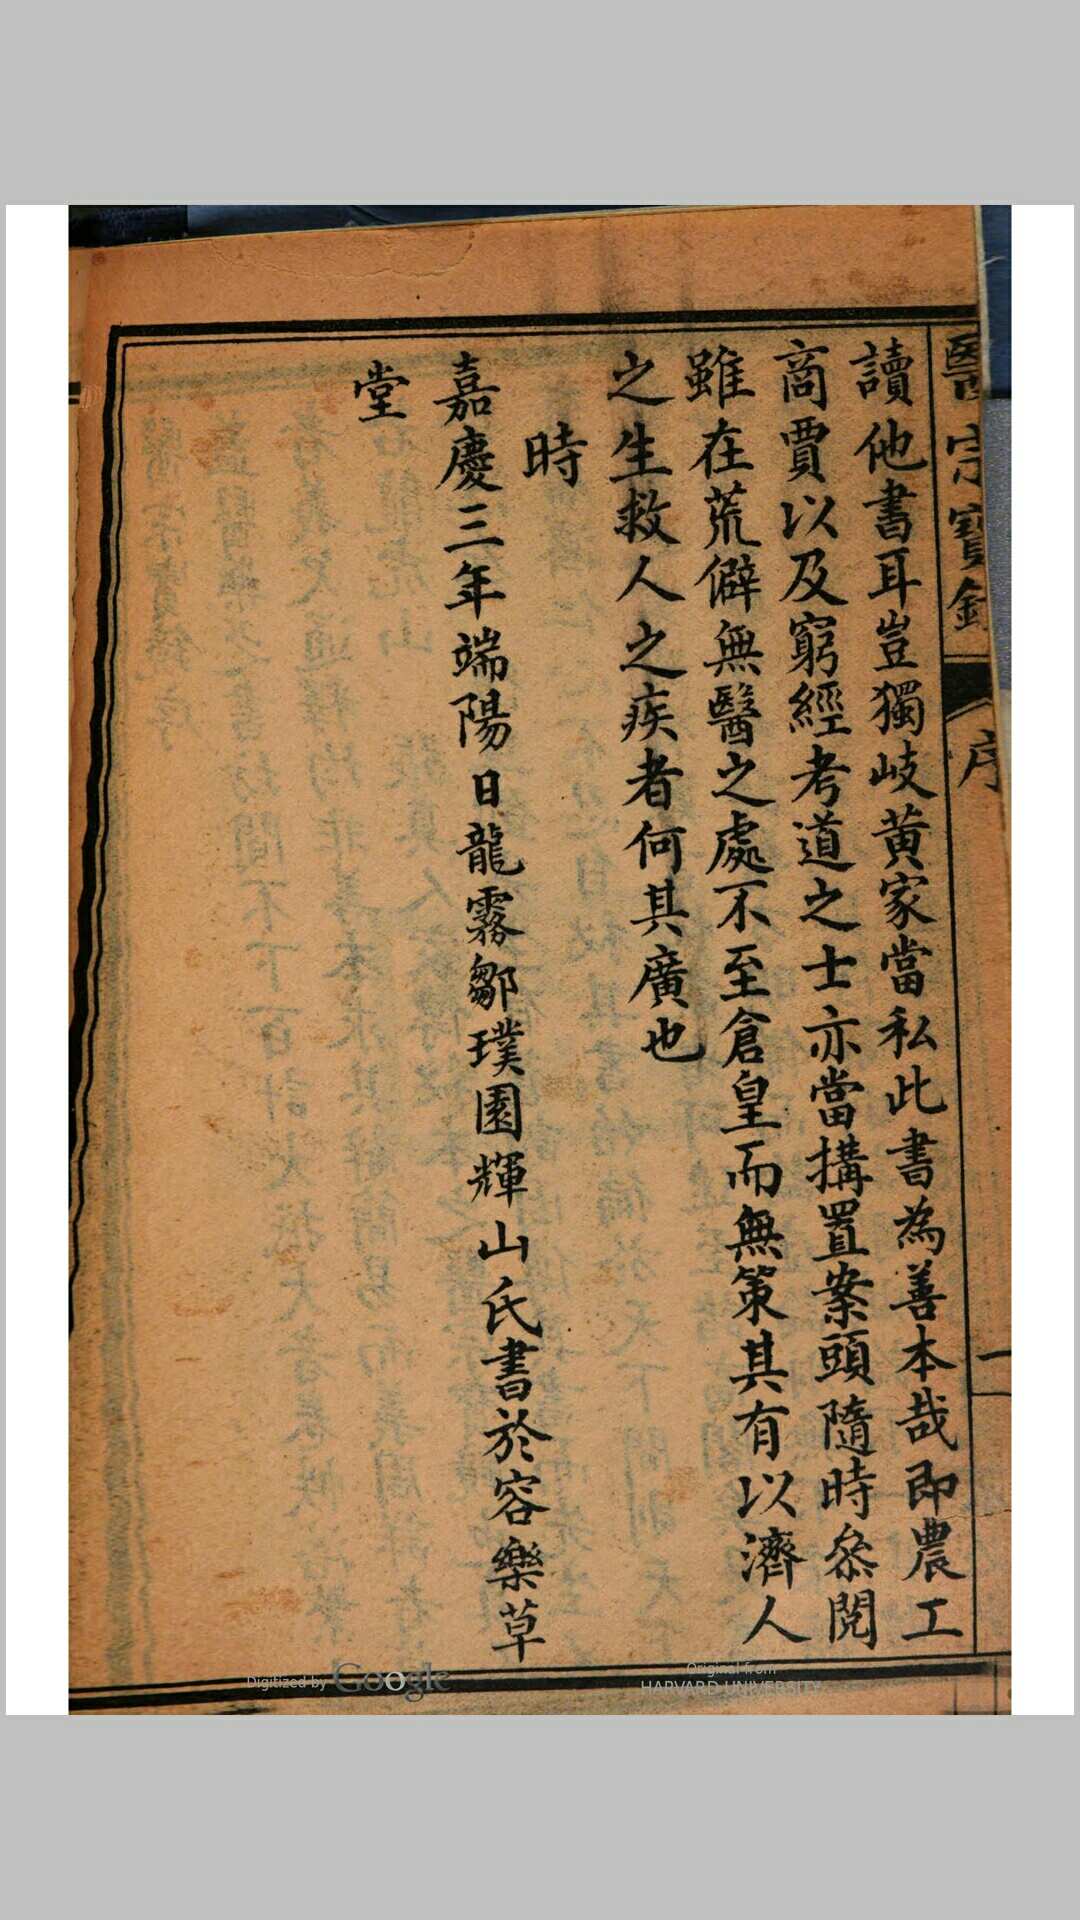 醫宗寶鏡
序
一
讀他書耳豈獨岐黄家當私此書為善本哉即農工
商賈以及窮經考道之士亦當搆置案頭隨時叅閱
雖在荒僻無醫之處不至倉皇而無策其有以濟人
之生救人之疾者何其廣也
時
嘉慶三年端陽日龍霧鄒璞園輝山氏書於容樂草
堂
Digitized by Google
Original from
HARVARD UNIVERSITY